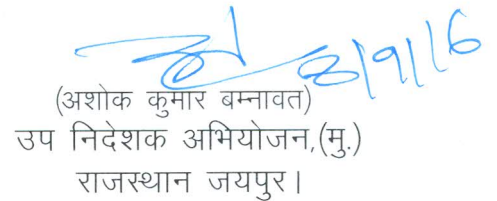 8/9/16
(अशोक कुमार बम्नावत)
उप निदेशक अभियोजन,(मु.)
राजस्थान जयपुर।